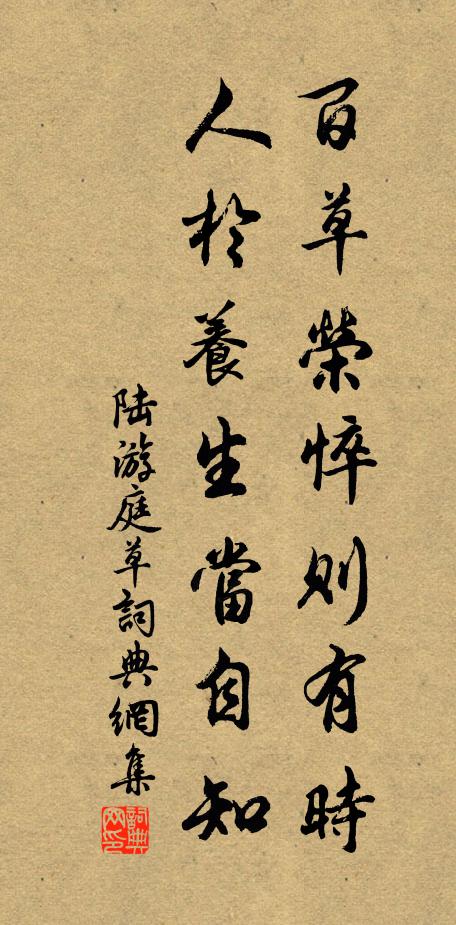 百草榮悴則有時
人於養生當自知
陸游庭草詞典網集
詞典網印